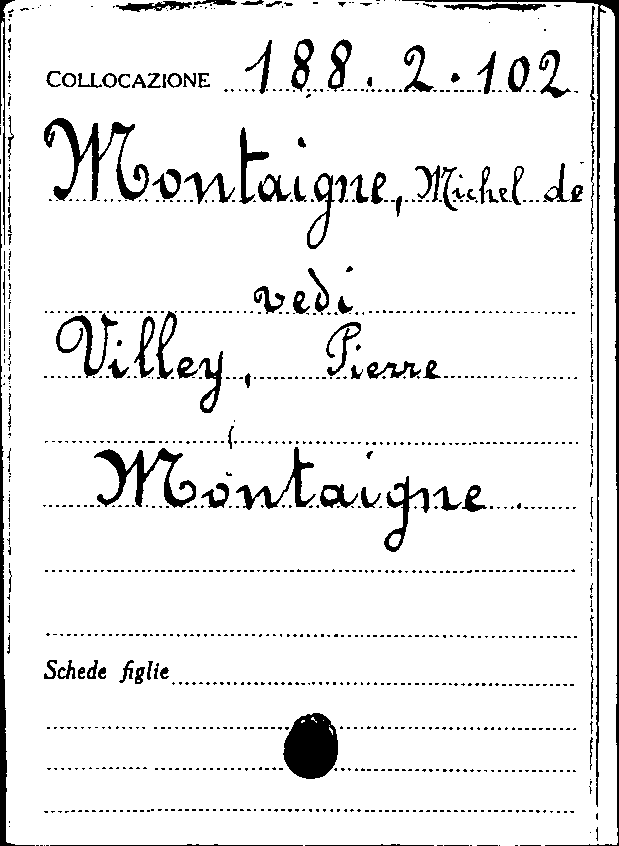 COLLOCAZIONE 188.2.102
Montaigne, Michel de
vedi
Villey, Pierre
Montaigne.
Schede figlie